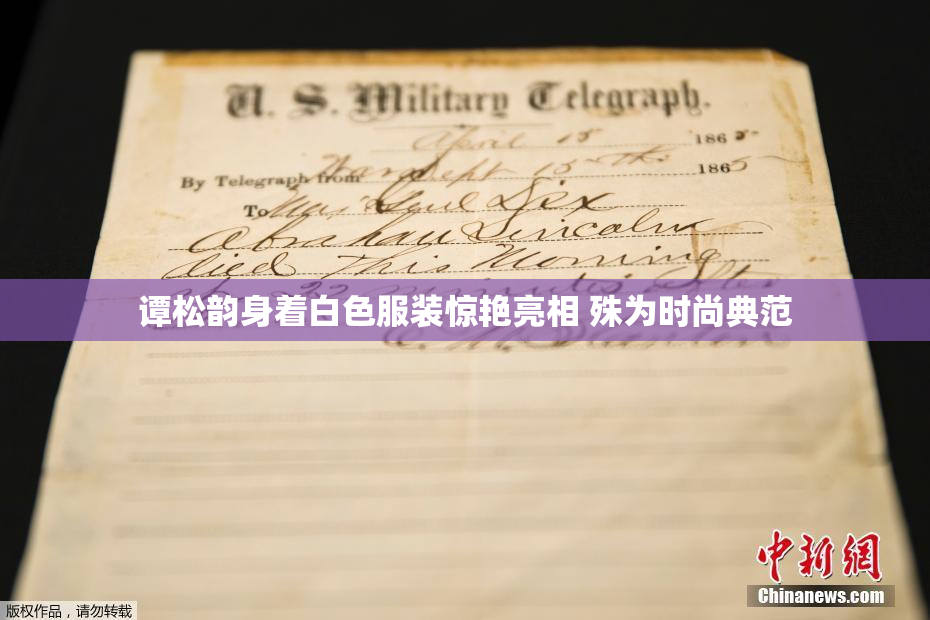 U. S. Military Telegraph.
April 15 1865
By Telegraph from War Dept 15th 1865
To Maj Genl Dix
Abraham Lincoln
died This Morning
at 22 minutes after
谭松韵身着白色服装惊艳亮相 殊为时尚典范
E. M. Stanton
中新网
Chinanews.com
版权作品,请勿转载